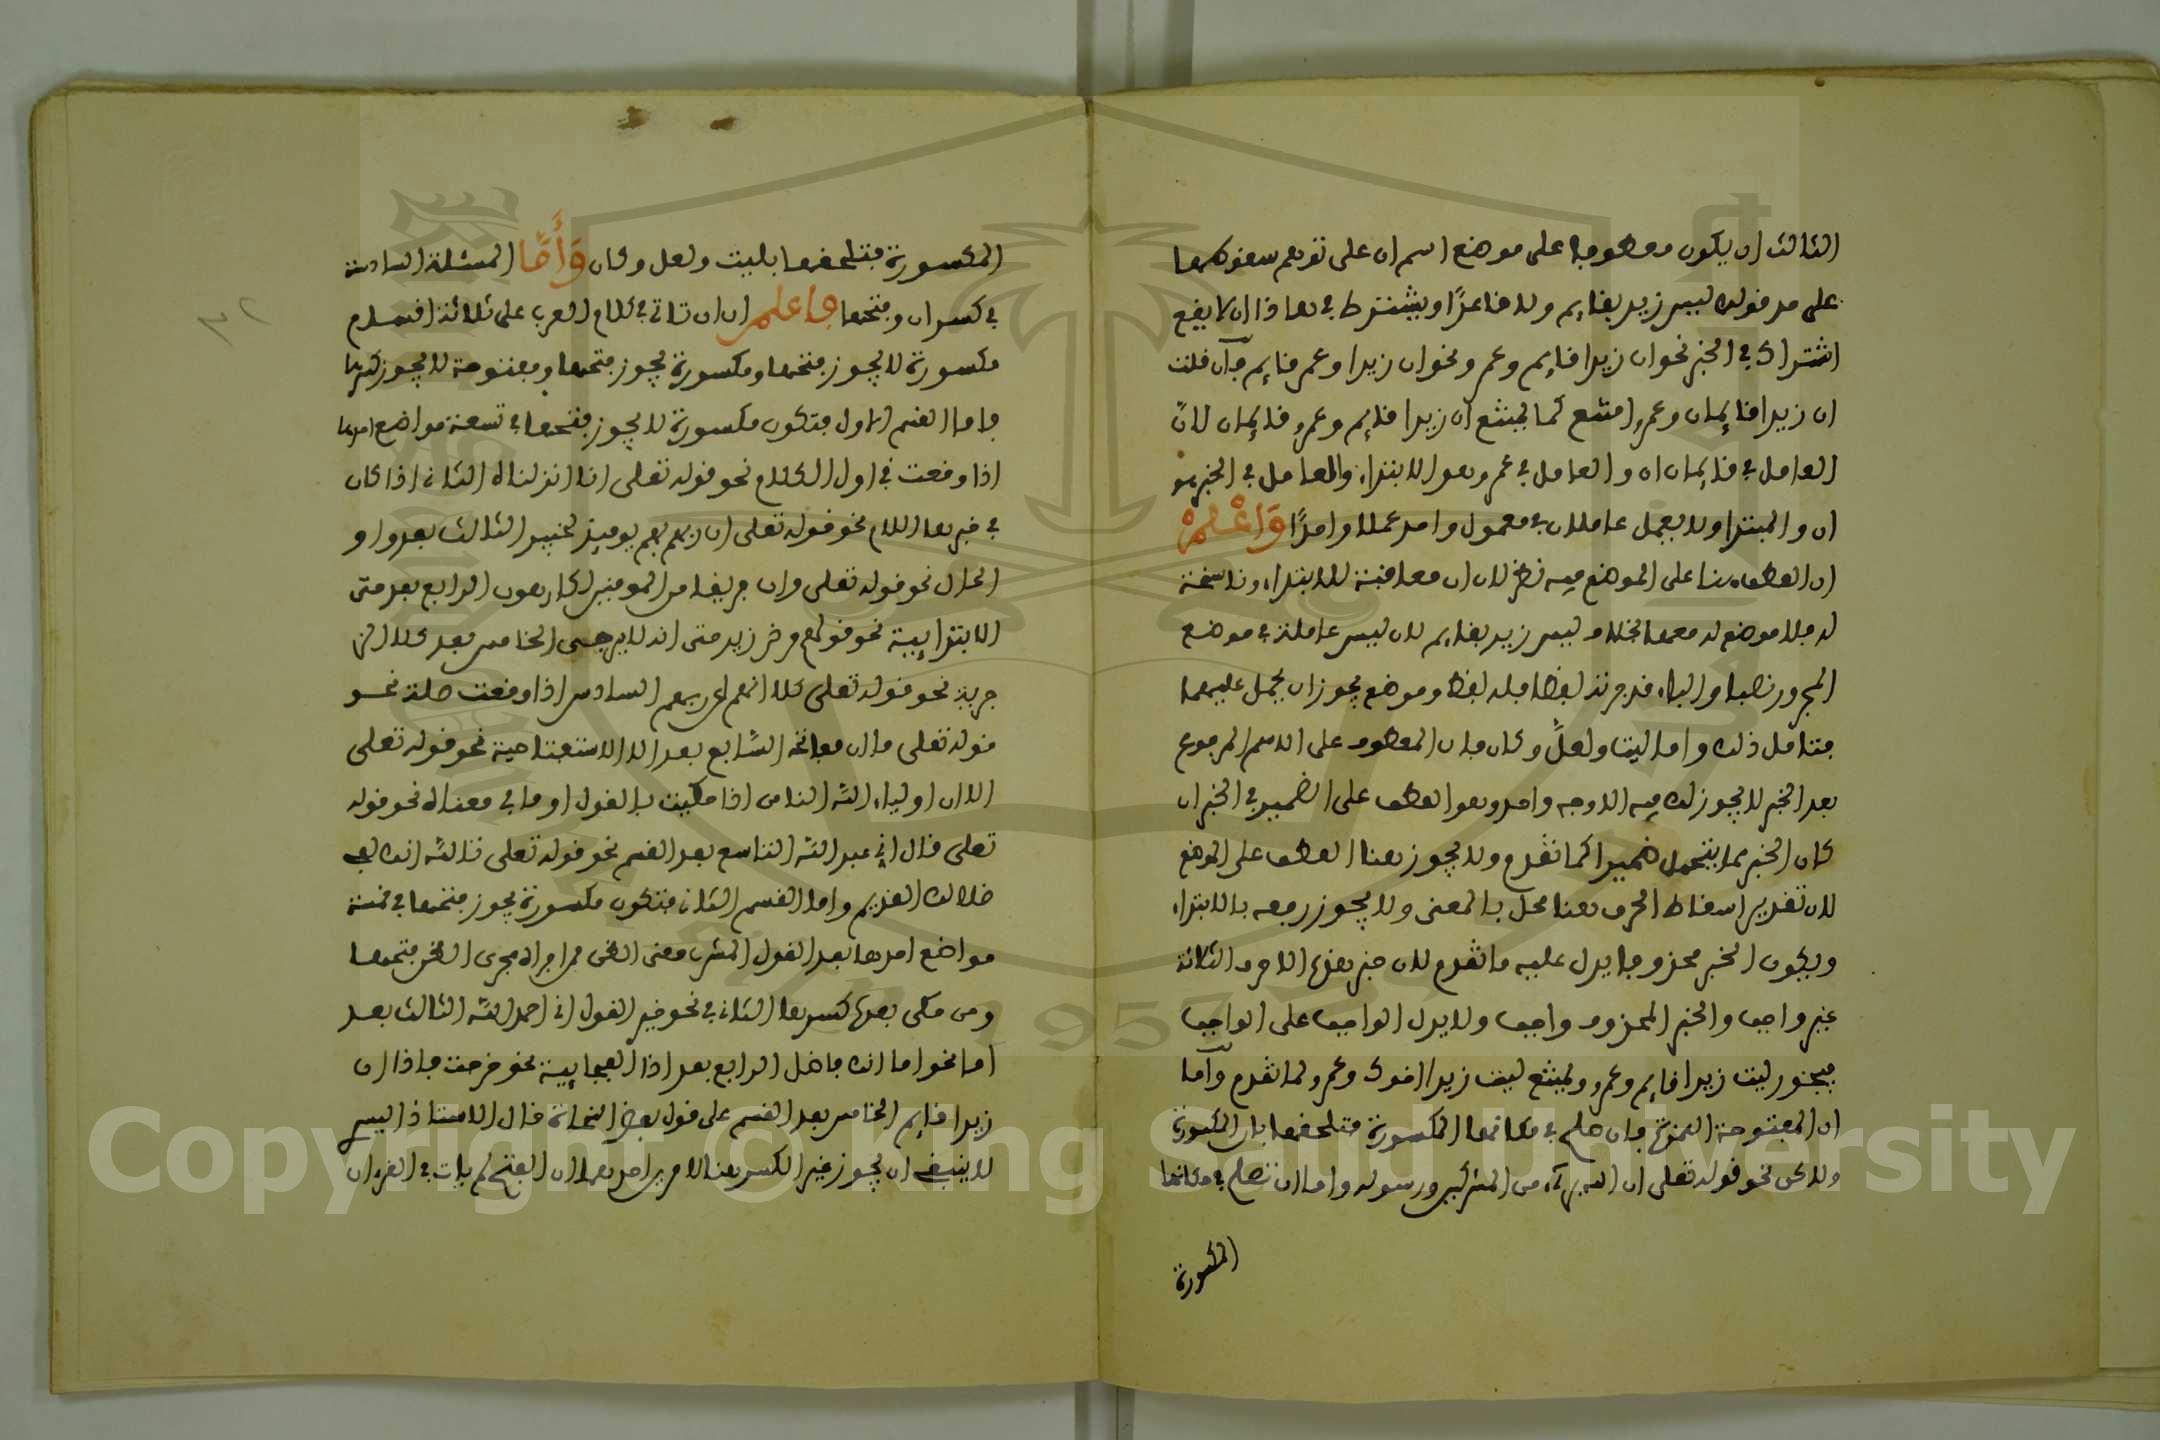 الثالث ان يكون معطوفا على موضع اسم ان على توهم سقوطها
على حد قولك ليس زيد بقايم ولا قاعدًا ويشترط في هاذا ان لا يقع
اشتراك في الخبر نحو ان زيدا قايم وعمر ونحو ان زيدا وعمر قايم فان قلت
ان زيدا قايمان وعمرو امتنع كما يمتنع ان زيدا قايم وعمرو قايمان لان
العامل في قايمان ان والعامل في عمرو هو الابتداء والعامل في الخبر هو
ان والمبتدا ولا يعمل عاملان في معمول واحد عملا واحدًا وَاعْلَمْ
ان العطف هنا على الموضع فيه نظر لان ان معاقبة للابتداء وناسخة
له فلا موضع له معها بخلاف ليس زيد بقايم لان ليس عاملة في موضع
المجرور نصبا والباء قد جرته لفظا فله لفظ وموضع يجوز ان يحمل عليهما
فتامل ذلك واما ليت ولعلَّ وكان فان المعطوف على الاسم المرفوع
بعد الخبر لا يجوز لك فيه الا وجه واحد وهو العطف على الضمير في الخبر ان
كان الخبر مما يتحمل ضميرا كما تقدم ولا يجوز هنا العطف على الموضع
لان تقدير اسقاط الحرف هنا مخل بالمعنى ولا يجوز رفعه بالابتداء
ويكون الخبر محذوفا يدل عليه ما تقدم لان خبر هذه الاحرف الثلاثة
غير واجب والخبر المحذوف واجب ولا يدل الواجب على الواجب
فيجوز ليت زيدا قايم وعمرو ويمتنع ليت زيدا اخوك وعمرو لما تقدم واما
ان المفتوحة الهمزة فان صلح في مكانها المكسورة فتلحقها بان المكسورة
ولاكن نحو قوله تعلى ان الله بريء من المشركين ورسوله واما ان تصلح في مكانها
المكسورة
المكسورة فتلحقها بليت ولعل وكان وَأَمَّا المسئلة السادسة
في كسر ان وفتحها فاعلم ان ان تاتي في كلام العرب على ثلاثة اقسام
مكسورة لا يجوز فتحها ومكسورة يجوز فتحها ومفتوحة لا يجوز كسرها
فاما القسم الاول فتكون مكسورة لا يجوز فتحها في تسعة مواضع احدها
اذا وقعت في اول الكلام نحو قوله تعلى انا انزلناه الثاني اذا كان
في خبرها اللام نحو قوله تعلى ان ربهم بهم يوميذ لخبير الثالث بعد واو
الحال نحو قوله تعلى وان فريقا من المومنين لكارهون الرابع بعد حتى
الابتدايية نحو قولهم مرض زيد حتى انه لا يرجى الخامس بعد كلا التي
جرية نحو قوله تعلى كلا انهم عن ربهم السادس اذا وقعت صلة نحو
قوله تعلى ما ان مفاتحه السابع بعد الا الاستفتاحية نحو قوله تعلى
الا ان اولياء الله الثامن اذا حكيت بالقول او ما في معناه نحو قوله
تعلى قال اني عبد الله التاسع بعد القسم نحو قوله تعلى تالله انك لفي
ضلالك القديم واما القسم الثاني فتكون مكسورة يجوز فتحها في خمسة
مواضع احدها بعد القول المشرب معنى الظن فمن اجراه مجرى الظن فتحها
ومن حكى بعده كسرها الثاني في نحو خير القول اني احمد الله الثالث بعد
اما نحو اما انك فاضل الرابع بعد اذا الفجايية نحو خرجت فاذا ان
زيدا قايم الخامس بعد القسم على قول بعض النحاة قال الاستاذ اليس
لا ينبغي ان يجوز غير الكسر هنا لامرين احدهما ان الفتح لم يات في القرءان